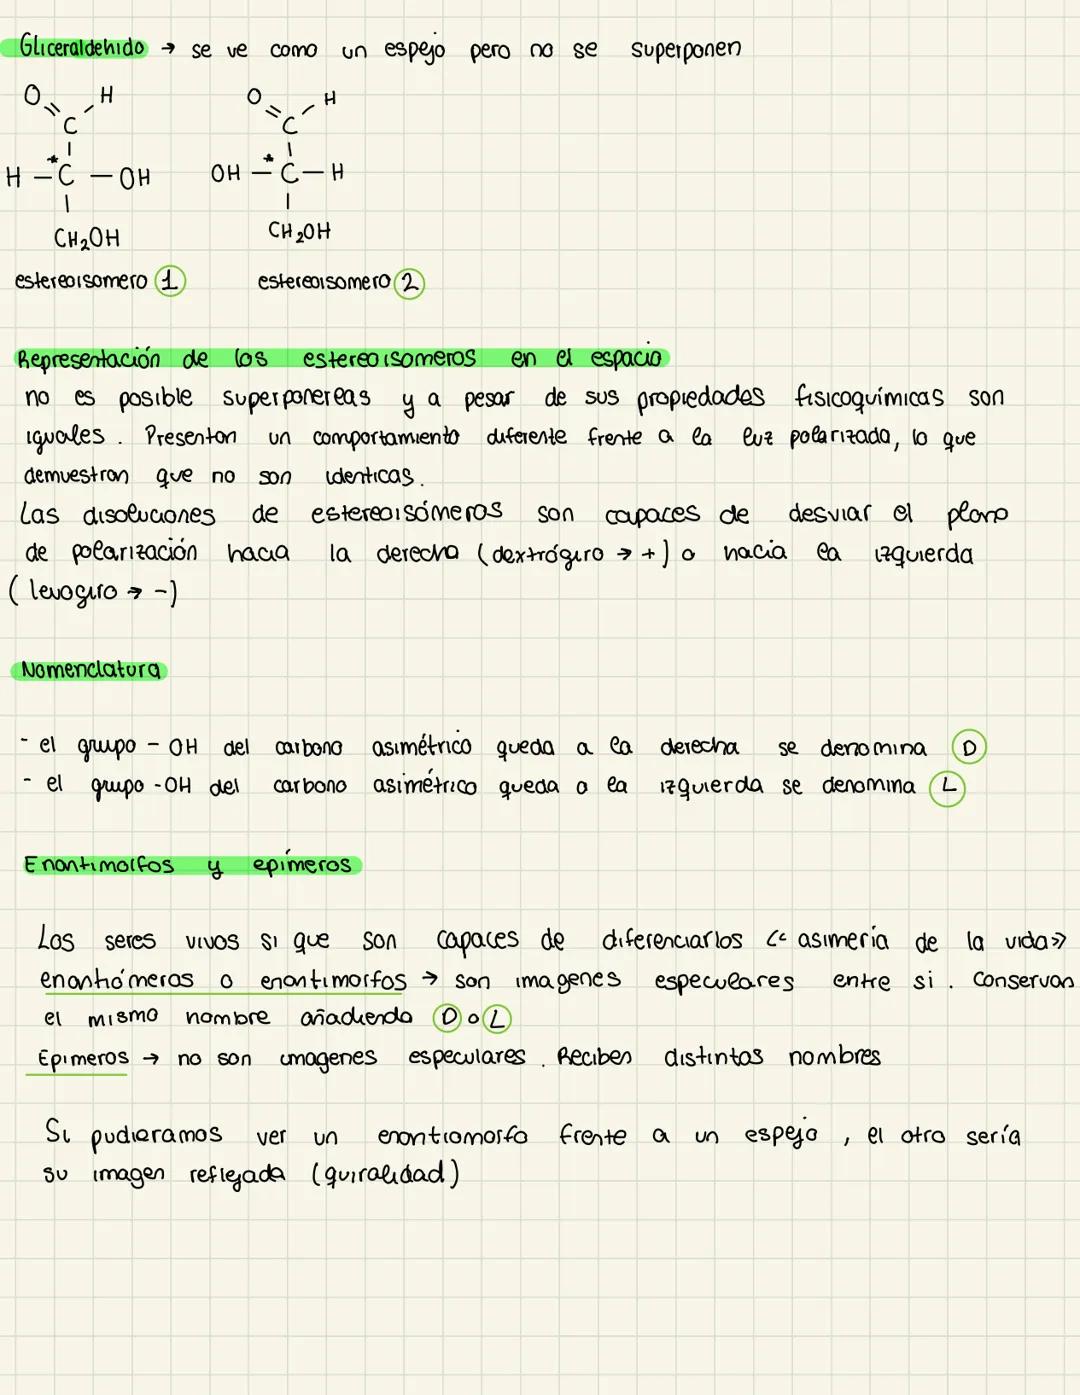 Gliceraldehido → se ve como un espejo pero no se superponen
O H O H
C C
H - *C - OH OH - *C - H
CH₂OH CH₂OH
estereoisomero 1 estereoisomero 2
Representación de los estereoisomeros en el espacio
no es posible superponereas y a pesar de sus propiedades fisicoquímicas son
iguales. Presentan un comportamiento diferente frente a la luz polarizada, lo que
demuestran que no son identicas.
Las disoluciones de estereoisómeros son capaces de desviar el plano
de polarización hacia la derecha (dextrógiro → +) o hacia la izquierda
(levogiro → -)
Nomenclatura
- el grupo - OH del carbono asimétrico queda a la derecha se denomina D
- el grupo -OH del carbono asimétrico queda a la izquierda se denomina L
Enantimorfos y epímeros
Los seres vivos si que son capaces de diferenciarlos << asimeria de la vida>>
enantiómeros o enantimorfos → son imagenes especulares entre si. Conservan
el mismo nombre añadiendo D o L
Epimeros → no son imagenes especulares. Reciben distintos nombres
Si pudieramos ver un enantiomorfo frente a un espejo, el otro sería
su imagen reflejada (quiralidad)